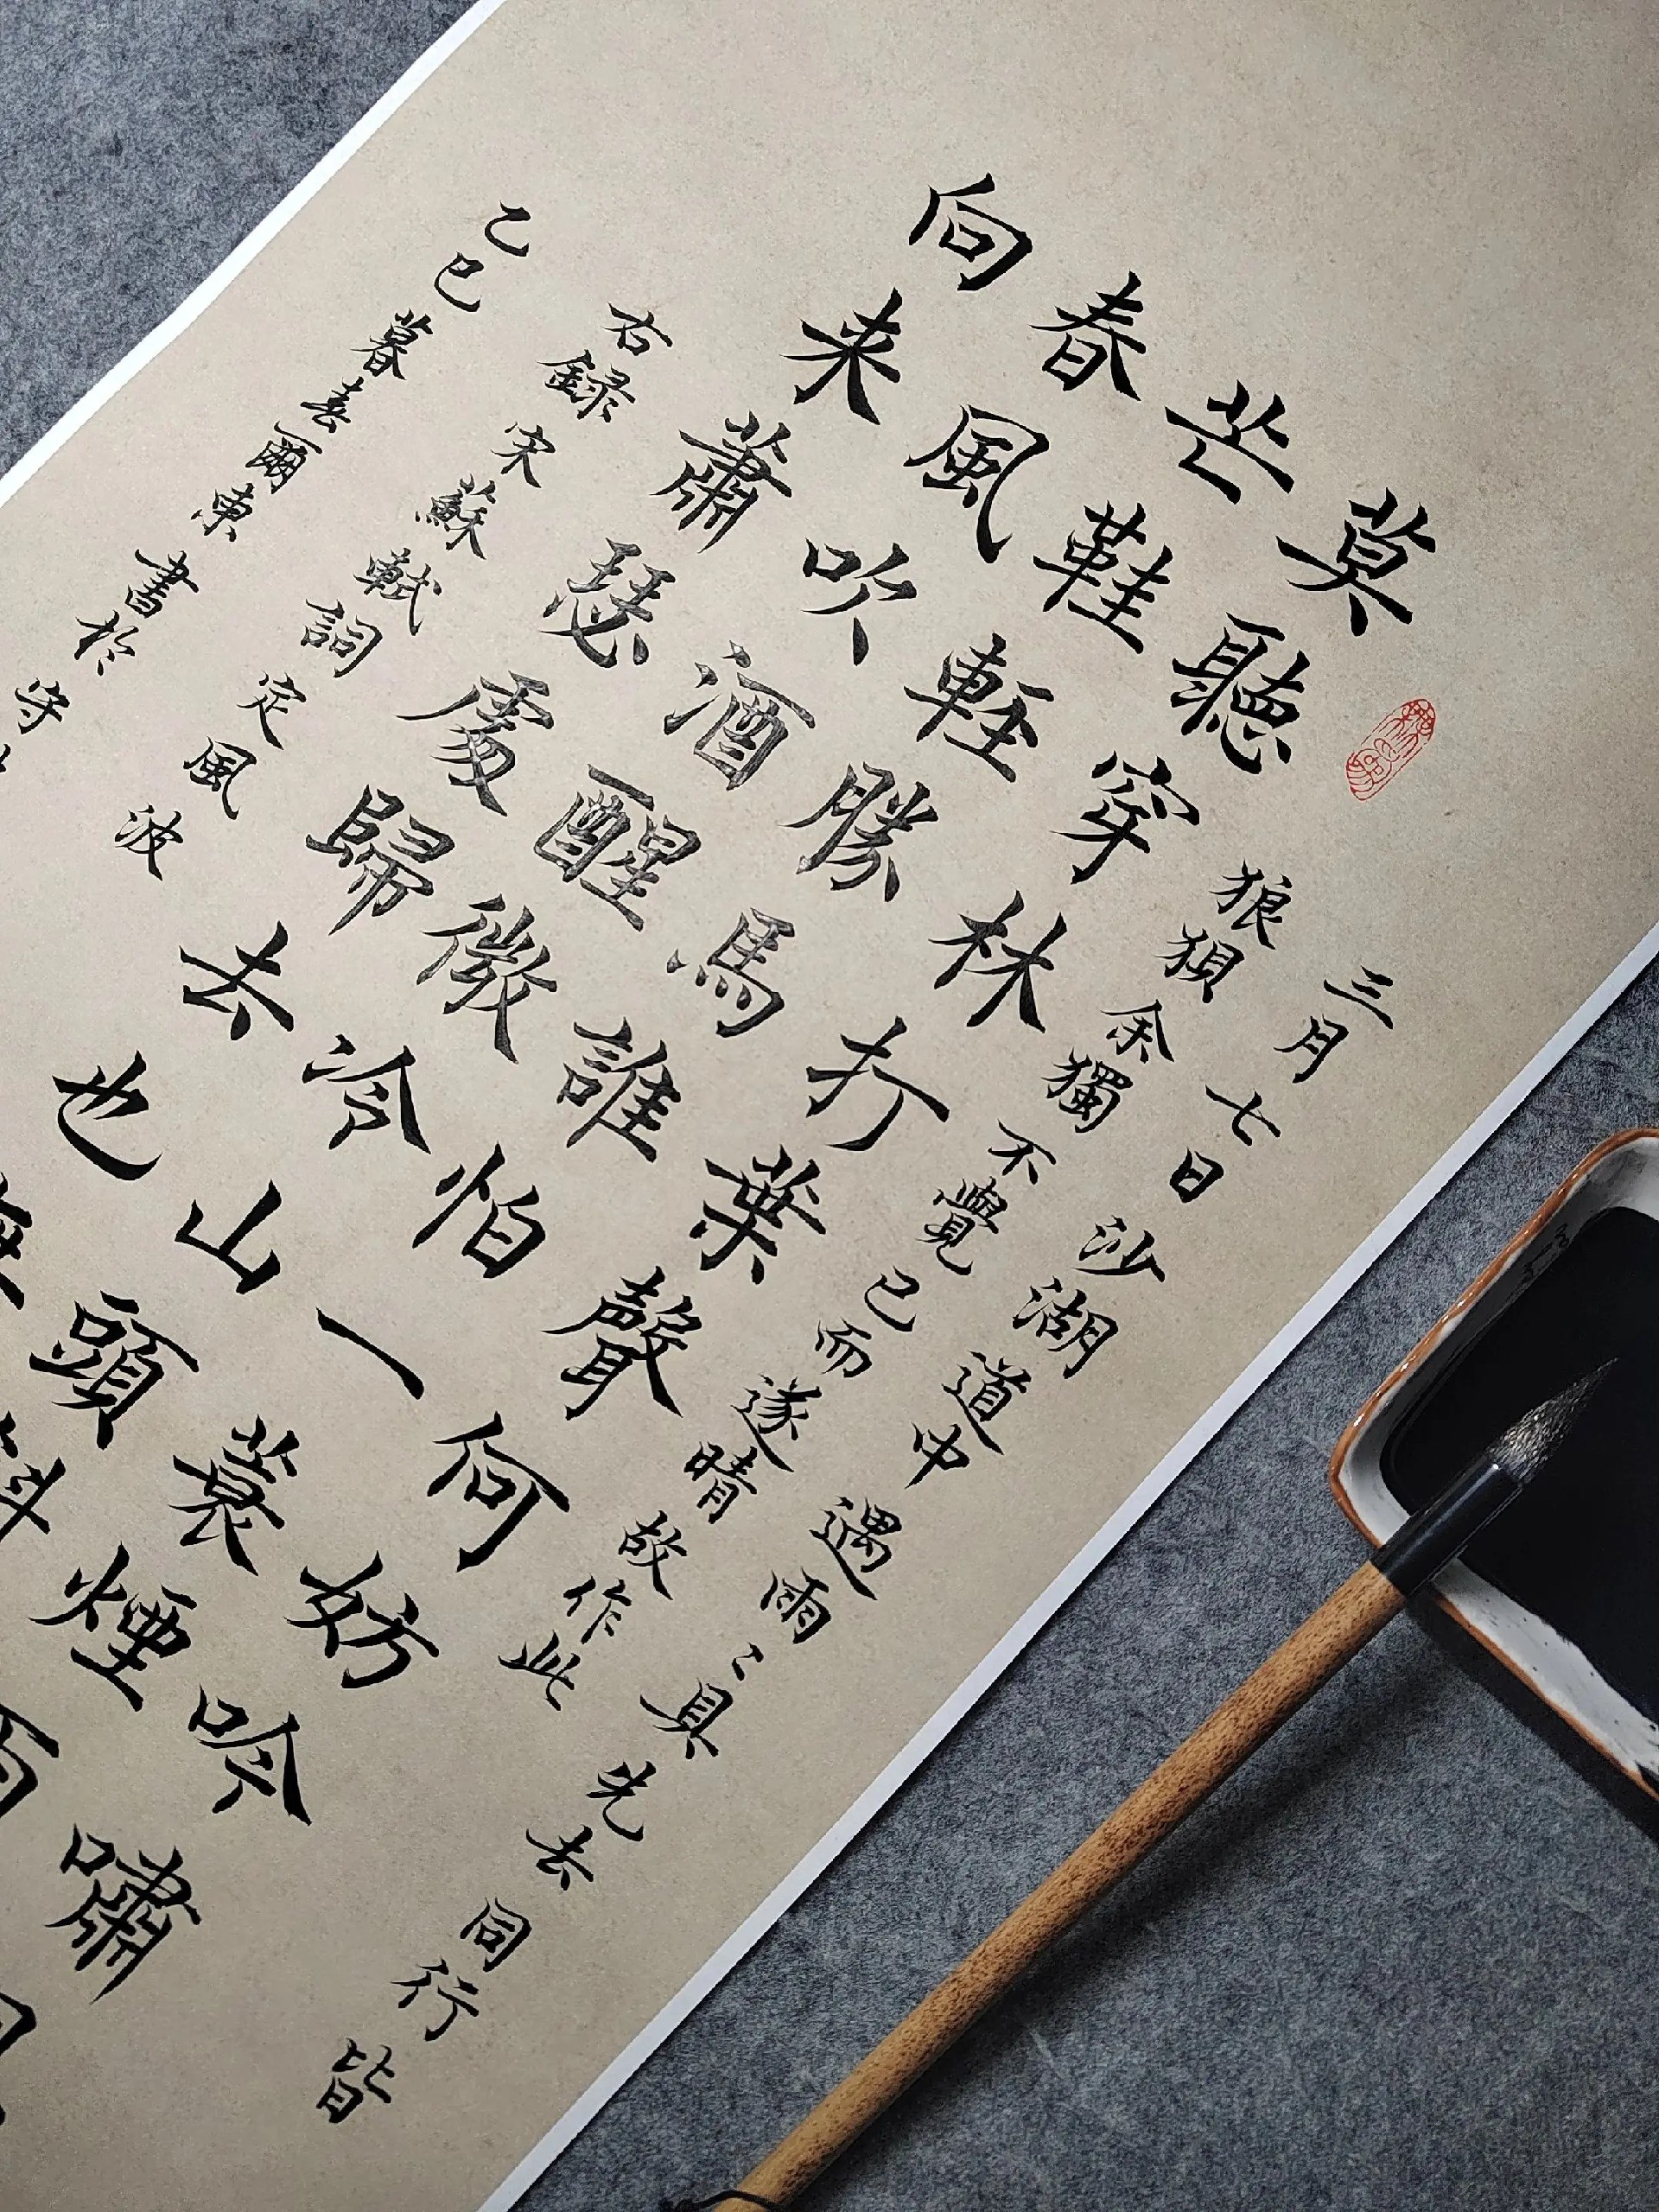 三月七日沙湖道中遇雨〻具先去同行皆
狼狽余獨不覺已而遂晴故作此
莫聽穿林打葉聲何妨吟嘯
芒鞋輕勝馬誰怕一蓑煙雨
春風吹酒醒微冷山頭
向来蕭瑟處歸去也
右録宋蘇軾詞定風波
乙巳暮春爾東書於守